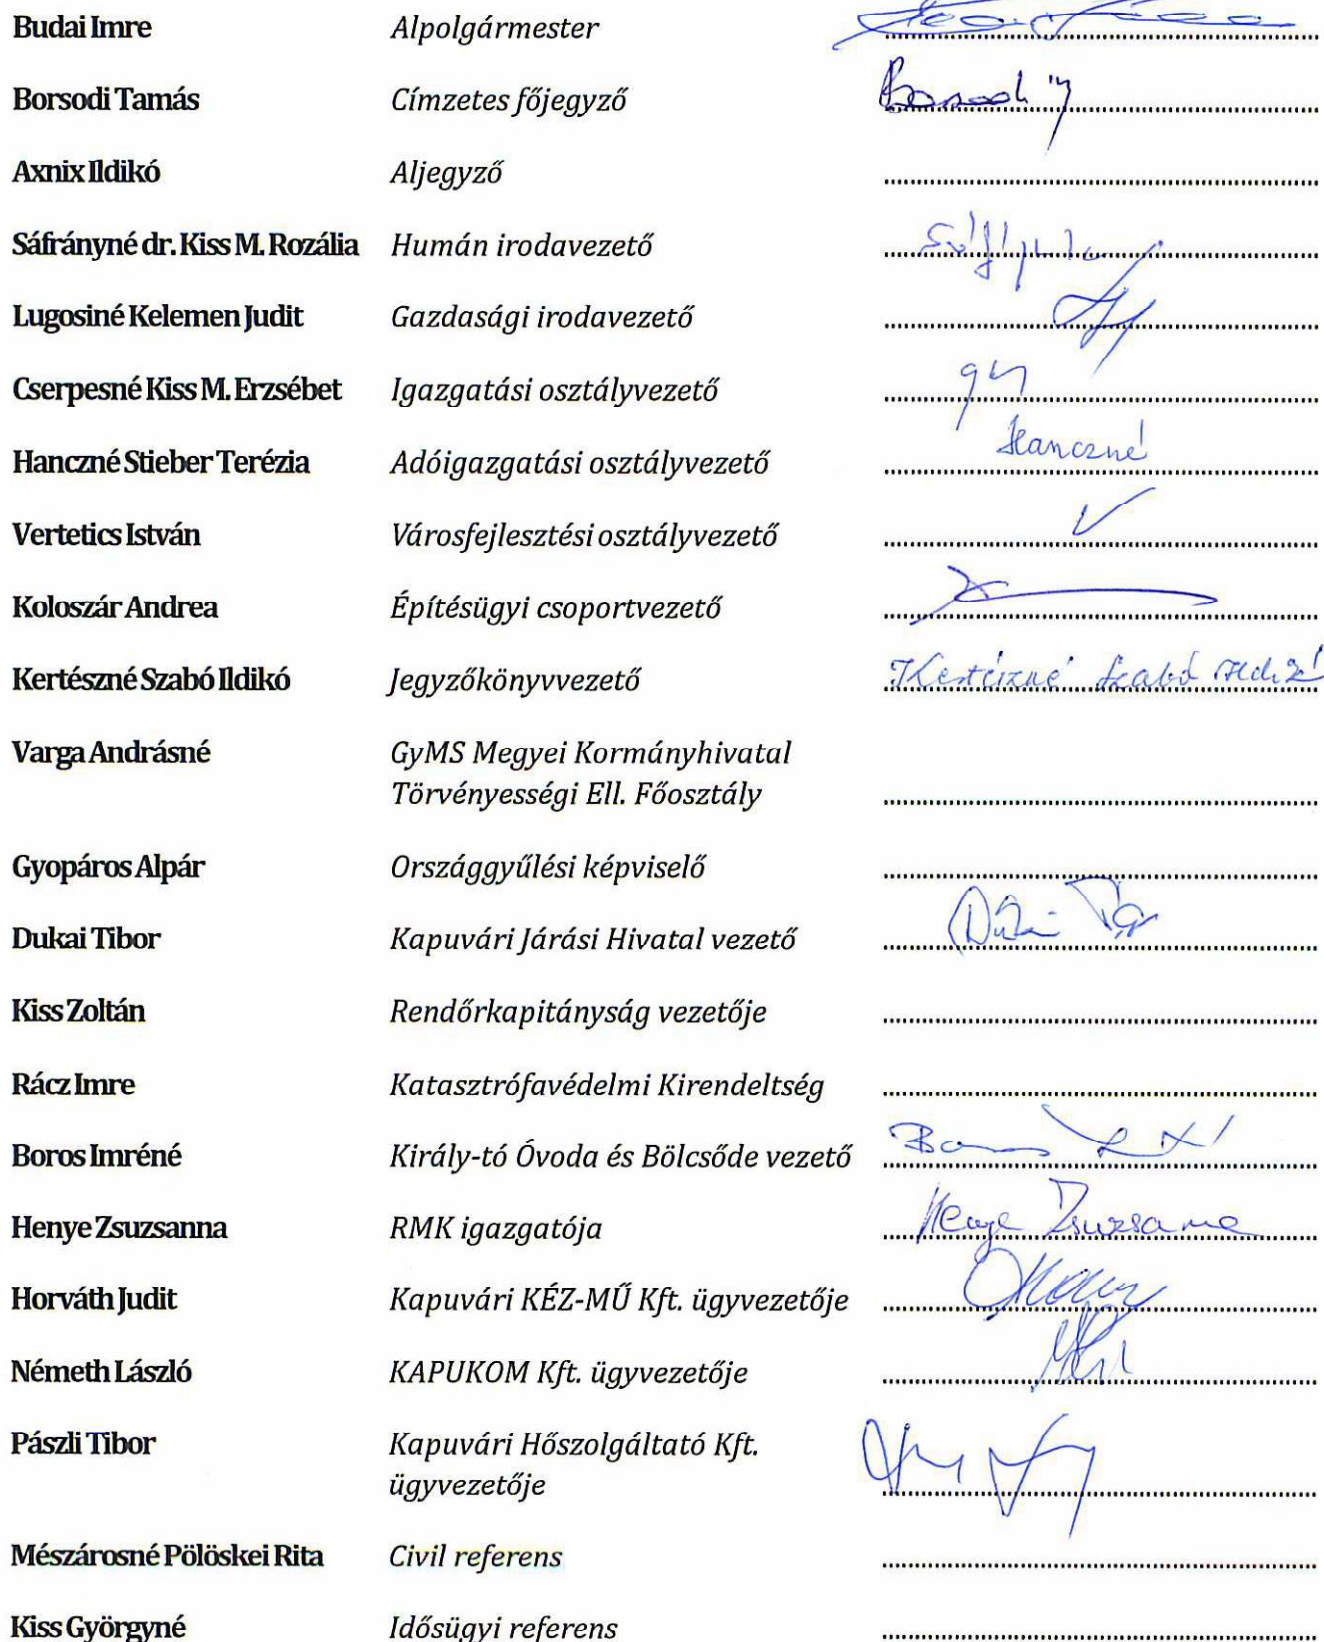 Budai Imre Alpolgármester
Borsodi Tamás Címzetes főjegyző Borsodi
Axnix Ildikó Aljegyző
Sáfrányné dr. Kiss M. Rozália Humán irodavezető
Lugosiné Kelemen Judit Gazdasági irodavezető
Cserpesné Kiss M. Erzsébet Igazgatási osztályvezető
Hanczné Stieber Terézia Adóigazgatási osztályvezető Hanczné
Vertetics István Városfejlesztési osztályvezető
Koloszár Andrea Építésügyi csoportvezető
Kertészné Szabó Ildikó Jegyzőkönyvvezető Kertészné Szabó Ildikó
Varga Andrásné GyMS Megyei Kormányhivatal
Törvényességi Ell. Főosztály
Gyopáros Alpár Országgyűlési képviselő
Dukai Tibor Kapuvári Járási Hivatal vezető
Kiss Zoltán Rendőrkapitányság vezetője
Rácz Imre Katasztrófavédelmi Kirendeltség
Boros Imréné Király-tó Óvoda és Bölcsőde vezető
Henye Zsuzsanna RMK igazgatója Henye Zsuzsanna
Horváth Judit Kapuvári KÉZ-MŰ Kft. ügyvezetője
Németh László KAPUKOM Kft. ügyvezetője
Pászli Tibor Kapuvári Hőszolgáltató Kft.
ügyvezetője
Mészárosné Pölöskei Rita Civil referens
Kiss Györgyné Idősügyi referens